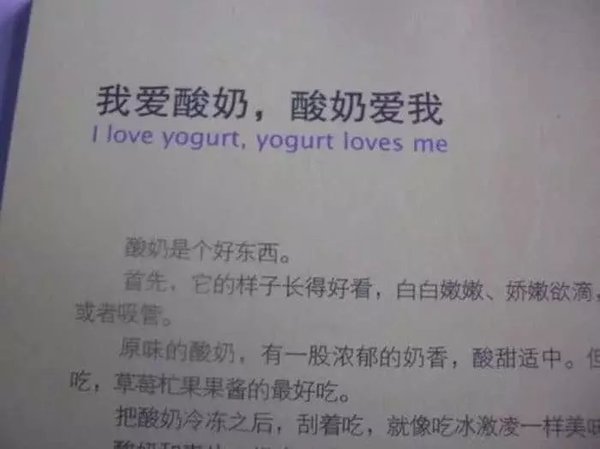 我爱酸奶，酸奶爱我
I love yogurt, yogurt loves me
酸奶是个好东西。
首先，它的样子长得好看，白白嫩嫩、娇嫩欲滴，
或者吸管。
原味的酸奶，有一股浓郁的奶香，酸甜适中。但
吃，草莓杧果果酱的最好吃。
把酸奶冷冻之后，刮着吃，就像吃冰激凌一样美味